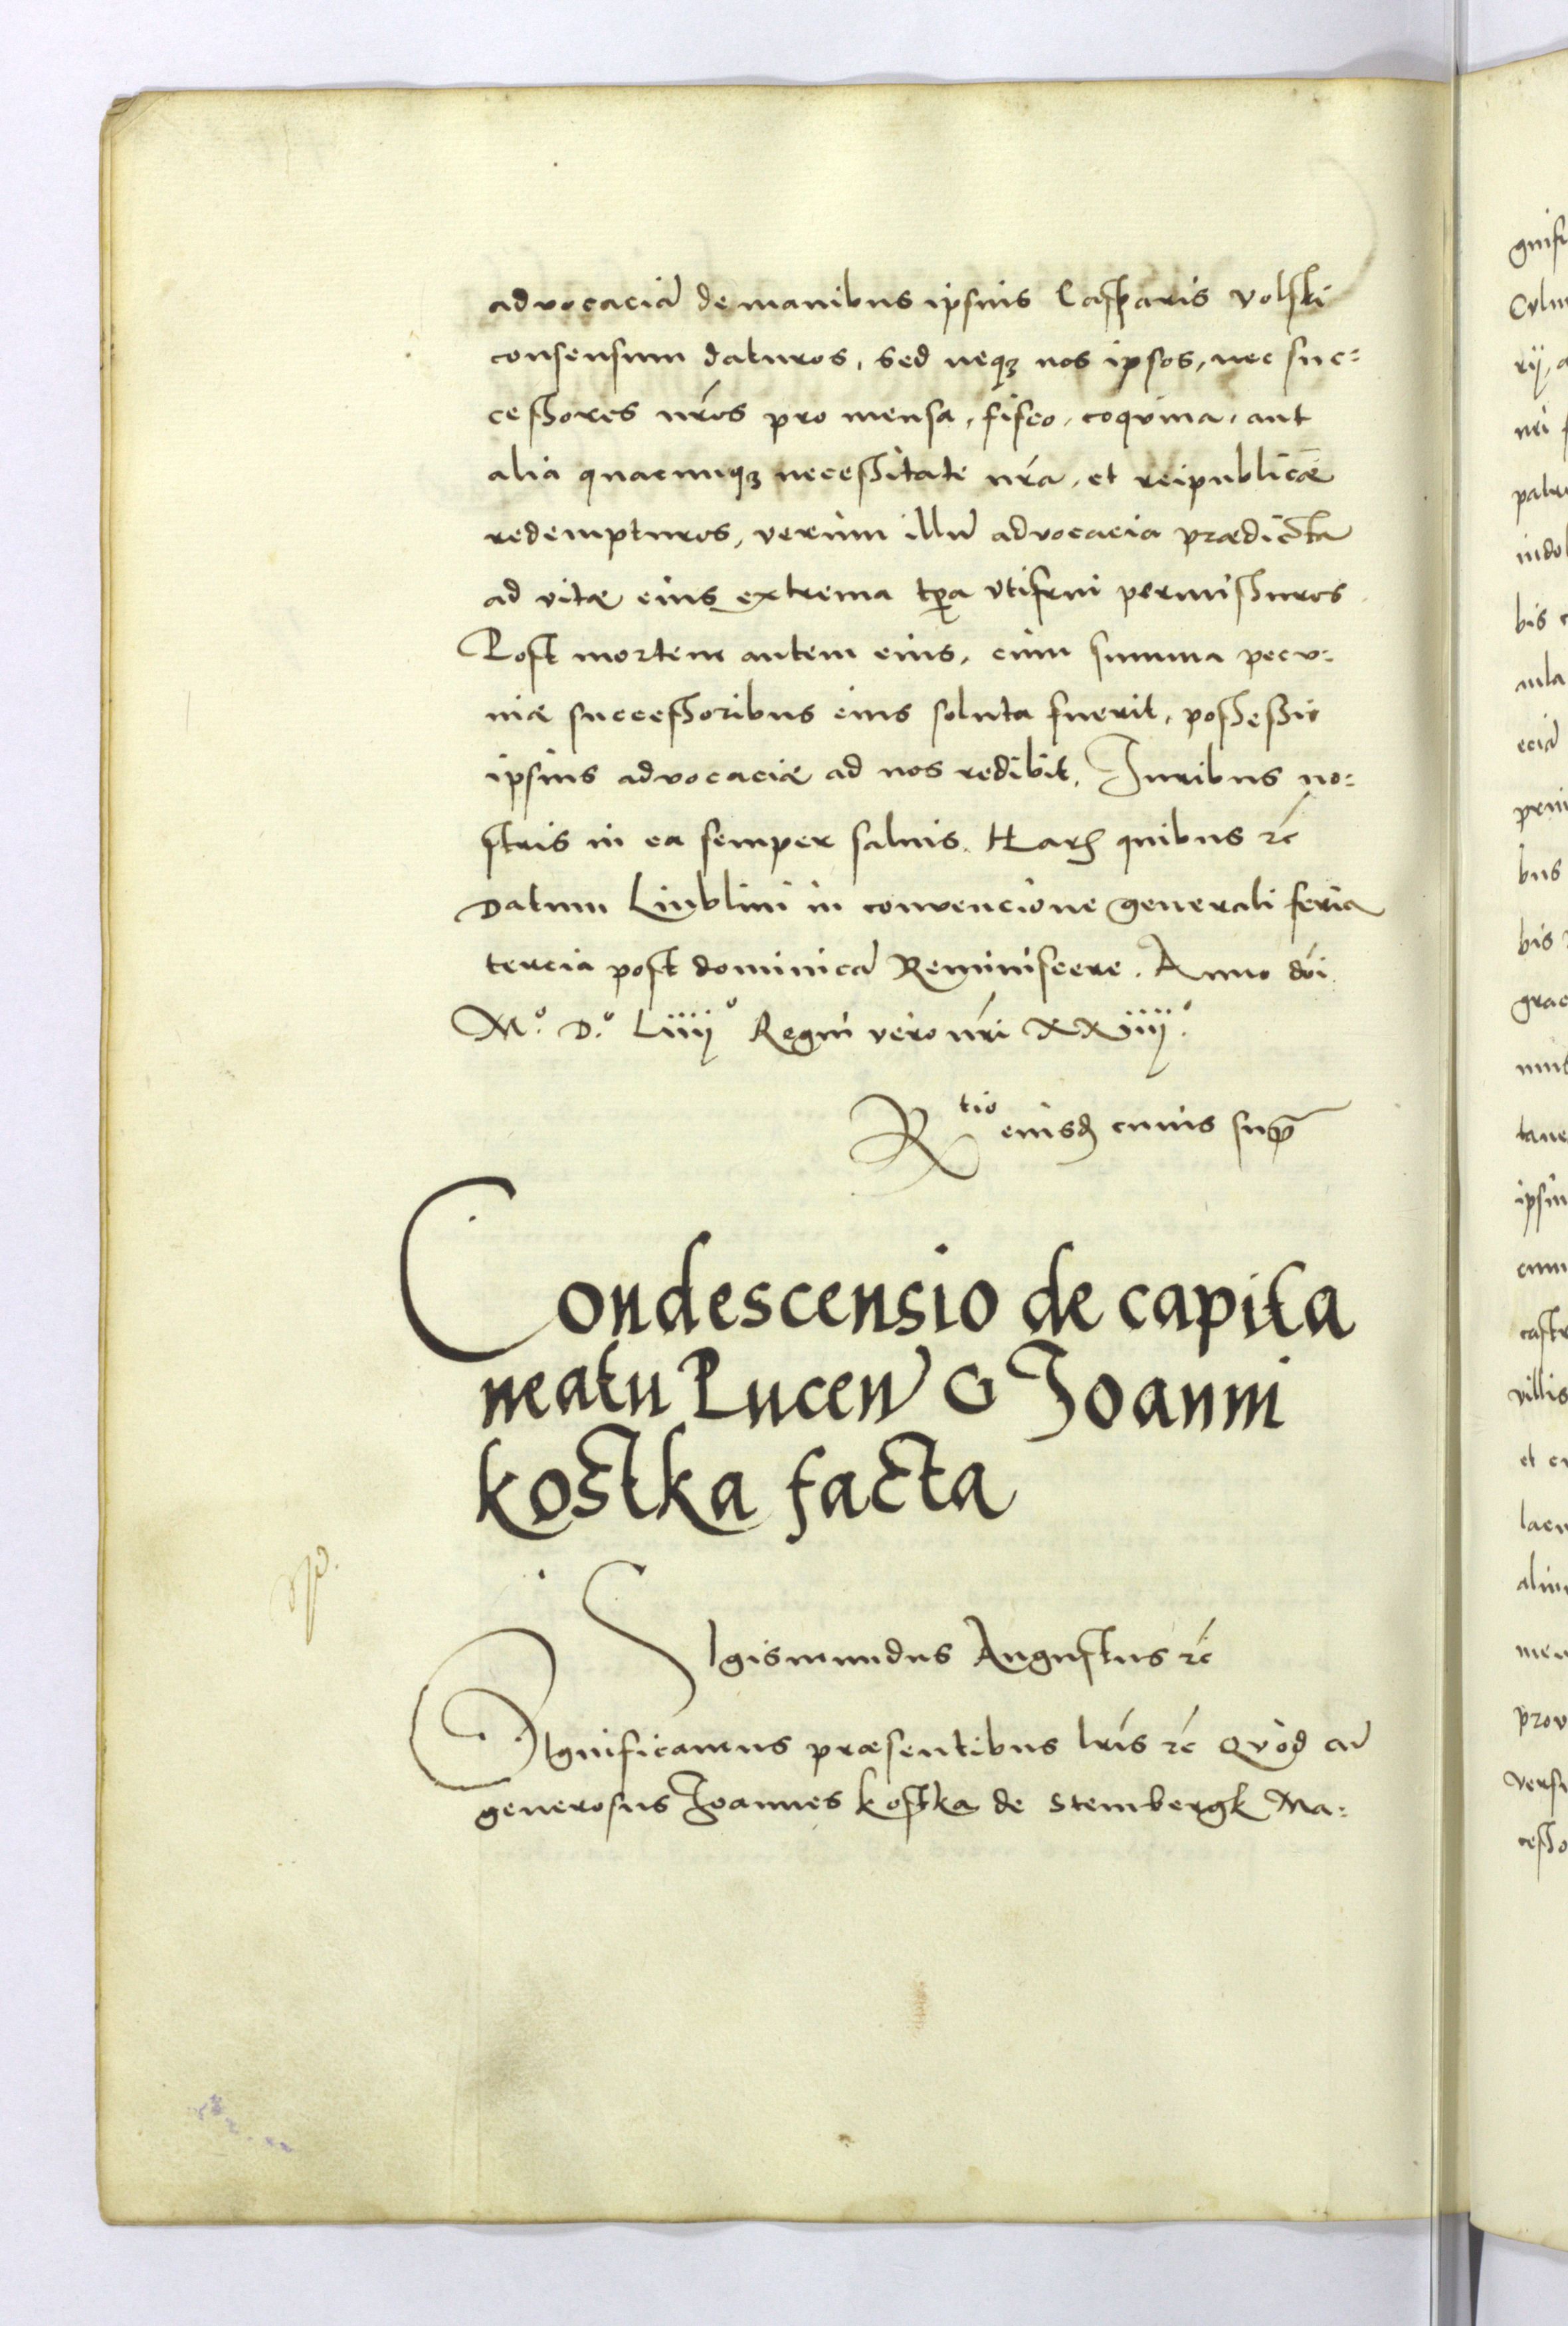 advocaciã de manibus ipsius Casparis Volski
consensum daturos, sed neqȝ nos ipsos, nec suc=
cessores nr̃os pro mensa, fisco, coqvina, aut
alia quacunqȝ necessitate nr̃a, et reipublicæ
redempturos, verùm illũ advocacia prædicta
ad vitæ eius extrema tp̃a vtifrui permissuros
Post mortem autem eius, cùm summa pecv=
niæ successoribus eius soluta fuerit, possessio
ipsius advocaciæ ad nos redibit, Iuribus no=
stris in ea semper saluis. Harꝫ quibus ꝛc̃
Datum Liublini in convencione generali feria
tercia post dominicã Reminiscere. Anno dñi
Mº. D.º Liiijº Regni vero nr̃i XXiiijº.
Rtio eiusdꝫ cuius supr̃a
Condescensio de capita
neatu Pucen̄ G Ioanni
kostka facta
SIgismundus Augustus ꝛc̃
SIgnificamus præsentibus lr̃is ꝛc̃ Qvòd cũ
generosus Ioannes kostka de Stembergk Ma=
gnifi
Cvlm
rij, a
nri
patr
indol
bis
aula
eciã
bus
bis
grac
ipsiu
cum
castr
villis
lacu
aliu
prov
versu
cesso